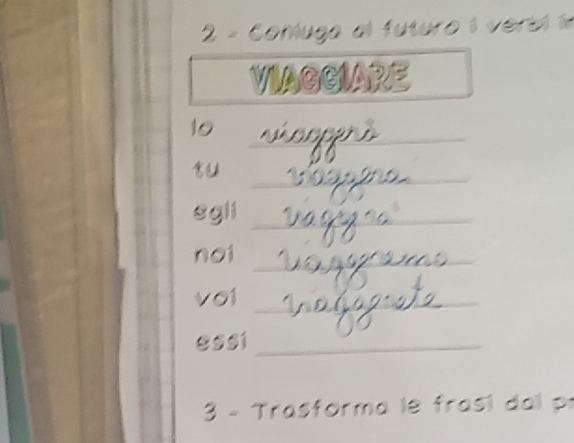 2 - Coniuga al futuro i verbi in
VIAGGIARE
Io viaggerò
tu viaggera
egli viaggrà
noi viaggremo
voi viaggrete
essi
3 - Trasforma le frasi dal